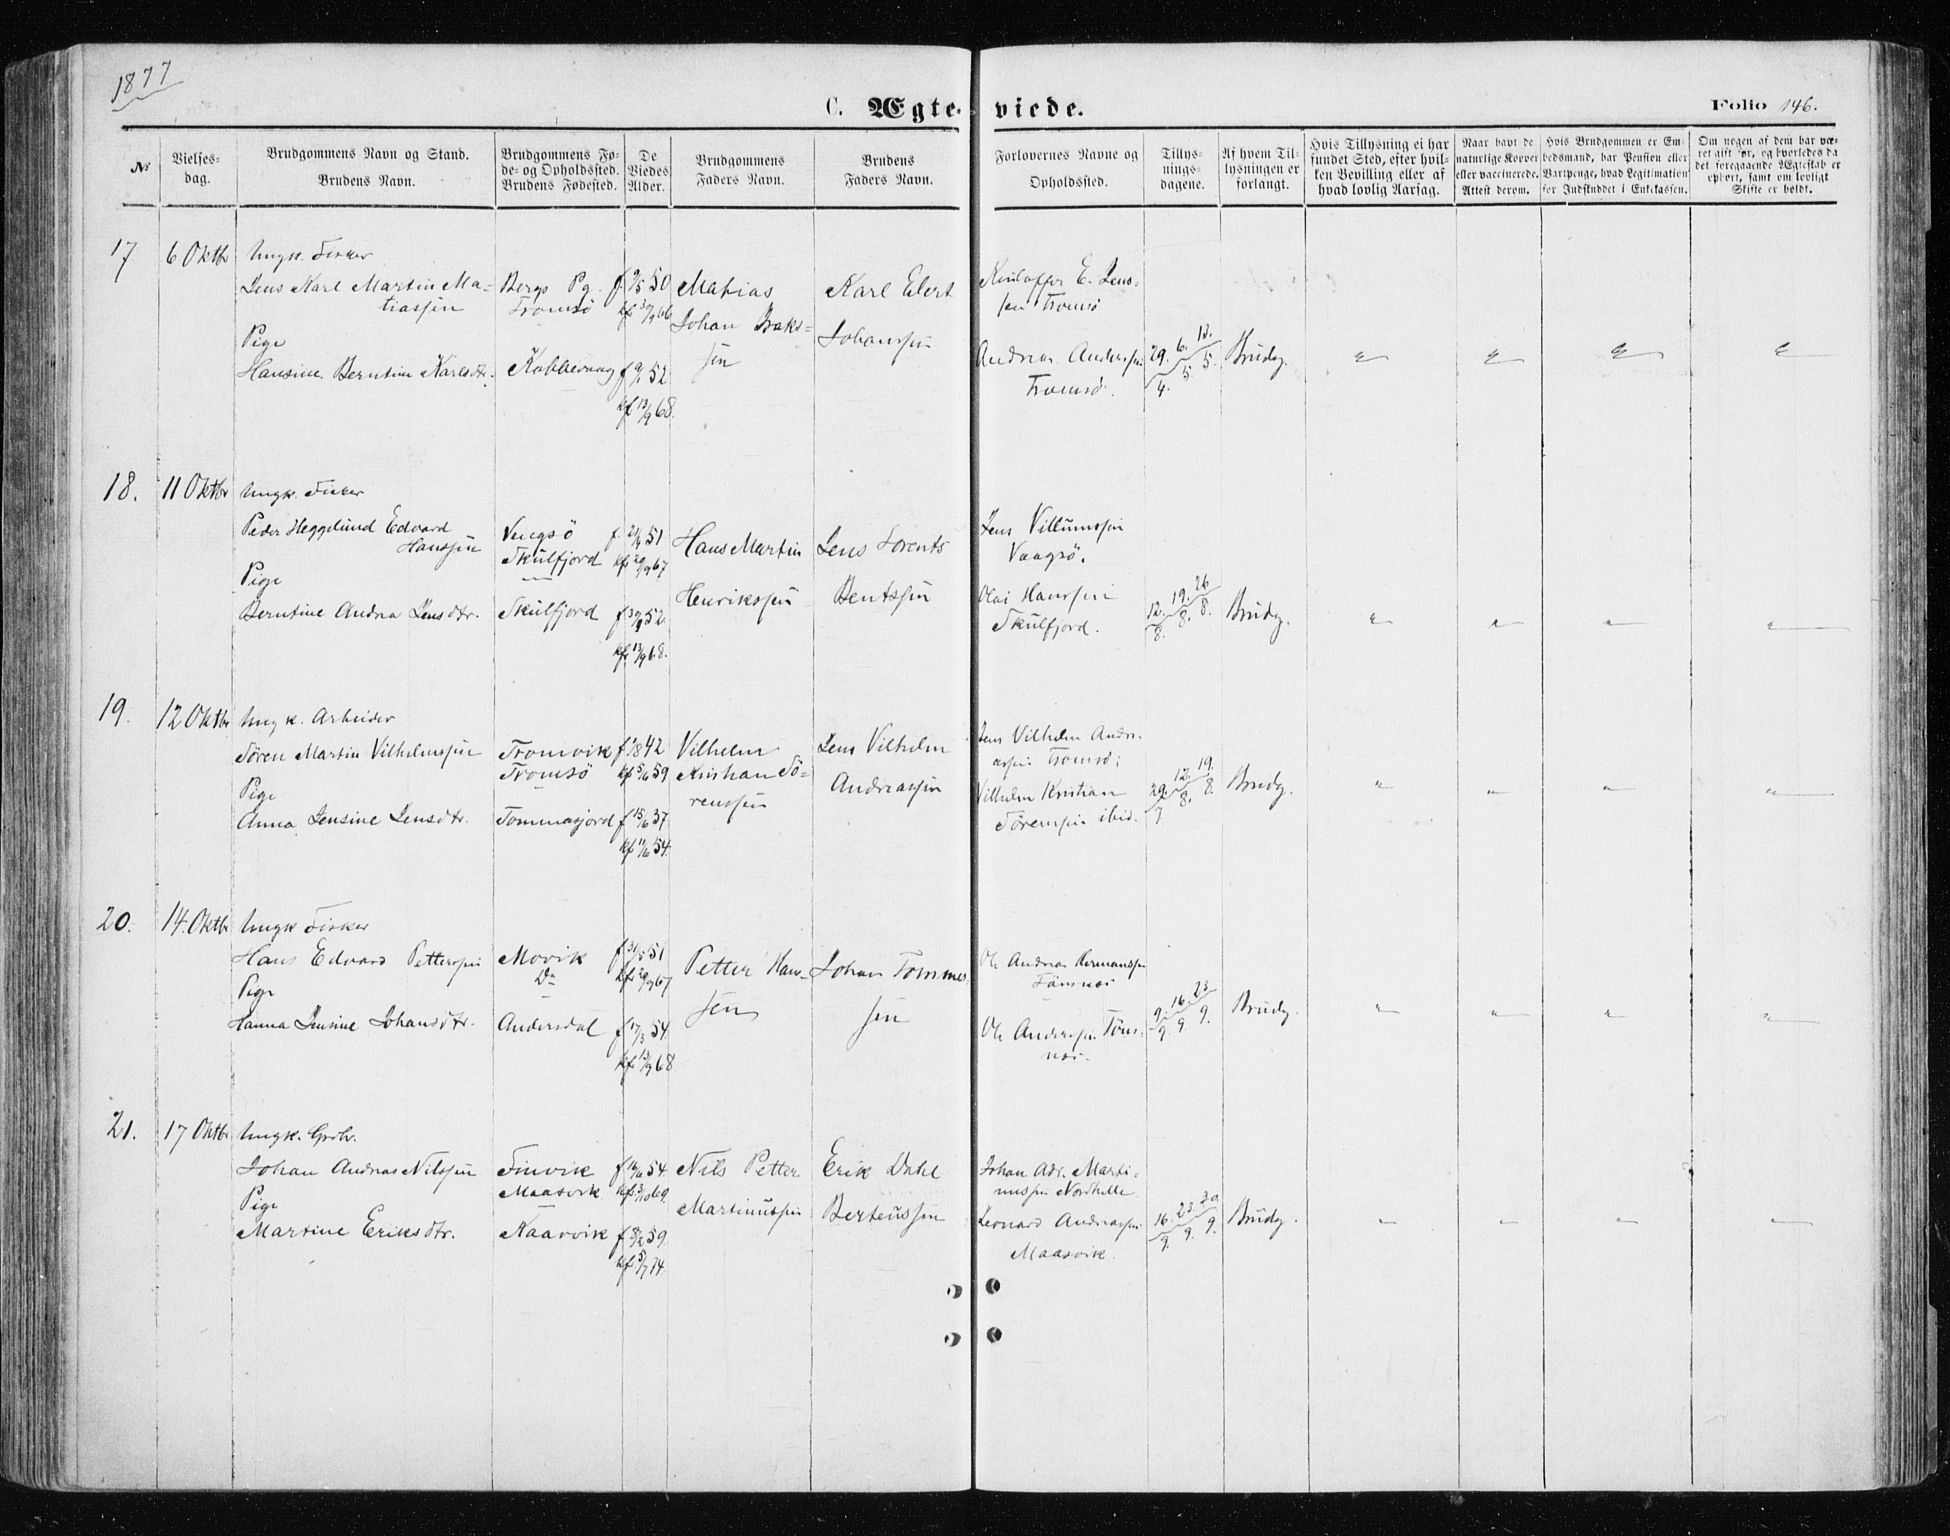 1877
C. Ægteviede.
Folio 146.
No
Vielses-
dag.
Brudgommens Navn og Stand.
Brudens Navn.
Brudgommens Fø-
de- og Opholdssted.
Brudens Fødested.
De
Viedes
Alder.
Brudgommens
Faders Navn.
Brudens
Faders Navn.
Forlovernes Navne og
Opholdssted.
Tillys-
nings-
dagene.
Af hvem Til-
lysningen er
forlangt.
Hvis Tillysning ei har
fundet Sted, efter hvil-
ken Bevilling eller af
hvad lovlig Aarsag.
Naar havt de
naturlige Kopper
eller vaccinerede.
Attest derom.
Hvis Brudgommen er Em-
bedsmand, har Pension eller
Vartpenge, hvad Legitimation
for Indskuddet i Enkekassen.
Om nogen af dem har væ-
ret gift før, og hvorledes da
det foregaaende Ægteskab er
ophørt, samt om lovligt
Skifte er holdt.
17 6 Oktbr Ungk. Fisker
Jens Karl Martin Ma-
tiassen
Pige
Hansine Berntine Karlsdtr.
Bergs Pg.
Tromsö
Kobbevaag
f. 9/5 50
kf 30/9 66
f 9/1 52
kf 13/9 68.
Mathias
Johan Isaks-
sen
Karl Elert
Johanssen
Kristoffer E. Jens-
sen Tromsö
Andreas Anderssen
Tromsö.
29. 6. 12.
4. 5. 5.
Brudg.
18. 11 Oktbr Ungk. Fisker
Peder Heggelund Edvard
Hanssen
Pige
Berntine Andrea Jensdtr.
Vengsö
Skulfjord
Skulfjord
f. 21/4 51
kf 29/9 67
f 30/9 52
kf 13/9 68.
Hans Martin
Henrikssen
Jens Lorents
Bentssen
Jens Villumssen
Vaagsö.
Olai Hanssen
Skulfjord.
12. 19. 26
8. 8. 8.
Brudg.
19. 12 Oktbr Ungk. Arbeider
Sören Martin Vilhelmssen
Pige
Anna Jensine Jensdtr.
Tromvik
Tromsö
Tommasjord
f 1/8 42
kf 5/6 59
f 15/6 37
kf 11/6 54.
Vilhelm
Kristian Sö-
renssen
Jens Vilhelm
Andreassen
Jens Vilhelm Andre-
assen Tromsö.
Vilhelm Kristian
Sörenssen ibid.
29. 12. 19.
7. 8. 8.
Brudg.
20. 14. Oktbr Ungk Fisker
Hans Edvard Petterssen
Pige
Hanna Jensine Johansdtr.
Movik
Do
Andersdal
f 31/5 51
kf 29/9 67
f 17/3 54.
kf 13/9 68
Petter Hans-
sen
Johan Tommes-
sen
Ole Andreas Hermanssen
Tönsnes
Ole Anderssen Töns-
nes.
9. 16. 23
9. 9. 9.
Brudg.
21. 17 Oktbr Ungk. Grdbr.
Johan Andreas Nilssen
Pige
Martine Eriksdtr.
Finvik
Maasvik
Kaarvik
f 12/6 54.
kf 3/10 69.
f 8/2 59.
kf. 5/7 74.
Nils Petter
Martinussen
Erik Dahl
Berteussen
Johan Adr. Marti-
nussen Nordkille
Leonard Andreassen
Maasvik.
16. 23. 30
9. 9. 9.
Brudg.